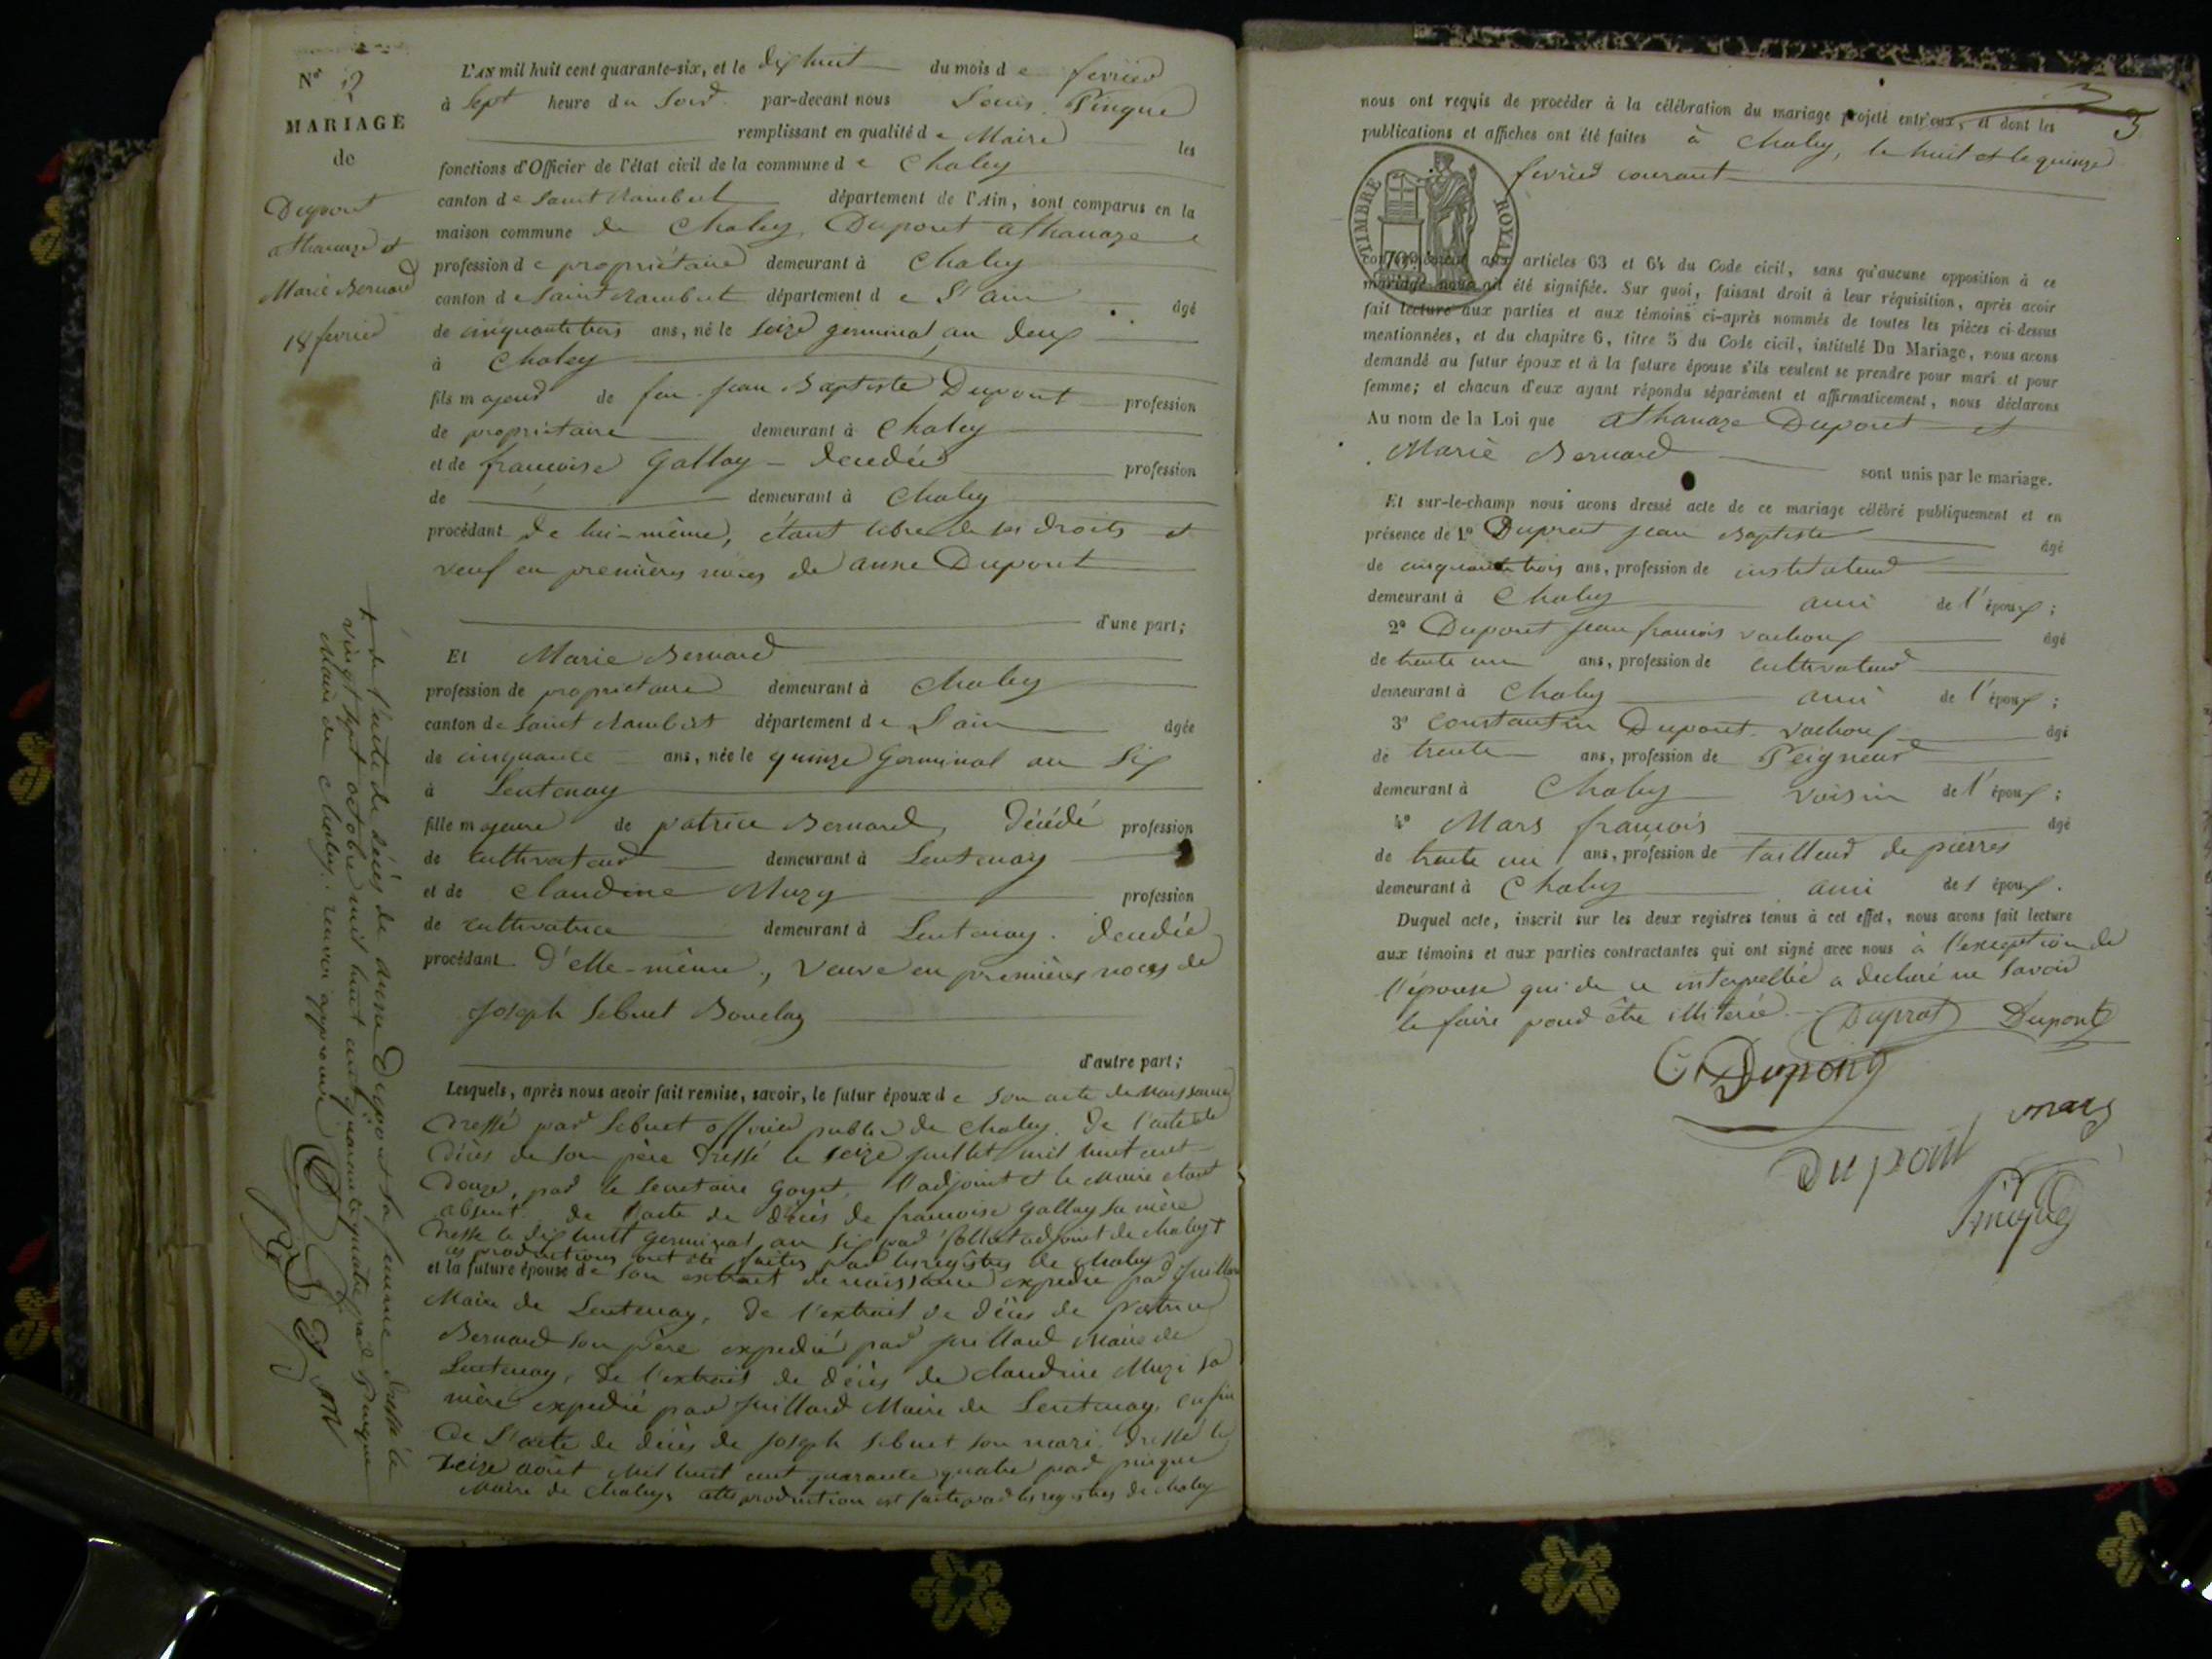 N° 2
MARIAGE
de
Dupont
athanaze et
Marie Bernard
18 fevrier
L'AN mil huit cent quarante-six, et le dix huit du mois de fevrier
à Sept heure du Soir par-devant nous Louis Pingue
remplissant en qualité de Maire les
fonctions d'Officier de l'état civil de la commune de Chaley
canton de Saint Rambert département de l'Ain, sont comparus en la
maison commune de Chaley Dupont athanaze
profession de propriétaire demeurant à Chaley
canton de Saint Rambert département de l'ain âgé
de cinquante trois ans, né le Seize germinal an deux
à Chaley
fils majeur de feu Jean Baptiste Dupont profession
de propriétaire demeurant à Chaley
et de francoise Gallay décédée profession
de demeurant à Chaley
procédant de lui-même, étant libre de ses droits et
veuf en premières noces de anne Dupont
d'une part;
Et Marie Bernard
profession de propriétaire demeurant à Chaley
canton de Saint Rambert département de L'ain âgée
de cinquante ans, née le quinze Germinal an Six
à Lentenay
fille majeure de patrice Bernard, Décédé profession
de cultivateur demeurant à Lentenay
et de Claudine Muzy profession
de cultivatrice demeurant à Lentenay. décédée
procédant D'elle-même, Veuve en premières noces de
Joseph Sebuet Bouclay
d'autre part;
Lesquels, après nous avoir fait remise, savoir, le futur époux de son acte de Naissance
dressé par Sebuet officier public de Chaley. De l'acte de
décès de son père Dressé le seize juillet mil huit cent
Douze, par le Secretaire Goyet, l'adjoint et le Maire étant
absent. de l'acte de décès de francoise Gallay sa mère
dresse le dix huit germinal an Six par adjoint de Chaley +
ces productions ont été faites par les registres de Chaley
et la future épouse de son extrait de naissance expedié par Juillard
Maire de Lentenay, de l'extrait de décès de patrice
Bernard son père expedié par Juillard Maire de
Lentenay, De l'extrait de décès de Claudine Muzi sa
mère expedié par Juillard Maire de Lentenay, enfin
De L'acte de décès de Joseph Sebuet son mari. Dressé le
treize août mil huit cent quarante quatre par pingue
Maire de Chaley, cette production est faite par les registres de Chaley
+ de l'acte de décès de anne Dupont sa femme dressé le
vingt sept octobre mil huit cent quarante quatre par Pingue
Maire de Chaley. renvoi approuvé
3
nous ont requis de procéder à la célébration du mariage projeté entr'eux, et dont les
publications et affiches ont été faites à Chaley, le huit et le quinze
fevrier courant
TIMBRE ROYAL
conformément aux articles 63 et 64 du Code civil, sans qu'aucune opposition à ce
mariage nous ait été signifiée. Sur quoi, faisant droit à leur réquisition, après avoir
fait lecture aux parties et aux témoins ci-après nommés de toutes les pièces ci-dessus
mentionnées, et du chapitre 6, titre 5 du Code civil, intitulé Du Mariage, nous avons
demandé au futur époux et à la future épouse s'ils veulent se prendre pour mari et pour
femme; et chacun d'eux ayant répondu séparément et affirmativement, nous déclarons
Au nom de la Loi que athanaze Dupont et
Marie Bernard
sont unis par le mariage.
Et sur-le-champ nous avons dressé acte de ce mariage célébré publiquement et en
présence de 1° Duprat jean Baptiste âgé
de cinquante trois ans, profession de instituteur
demeurant à Chaley ami de l'époux;
2° Dupont jean francois vachoux âgé
de trente un ans, profession de cultivateur
demeurant à Chaley ami de l'époux;
3° Constantin Dupont vachoux âgé
de trente ans, profession de Peigneur
demeurant à Chaley voisin de l'époux;
4° Mars francois âgé
de trente un ans, profession de tailleur de pierres
demeurant à Chaley ami de l époux.
Duquel acte, inscrit sur les deux registres tenus à cet effet, nous avons fait lecture
aux témoins et aux parties contractantes qui ont signé avec nous à l'exception de
l'épouse qui de ce interpellée a declaré ne savoir
le faire pour être illiterée.
Duprat Dupont
C. Dupont
mars
Dupont
Pingue